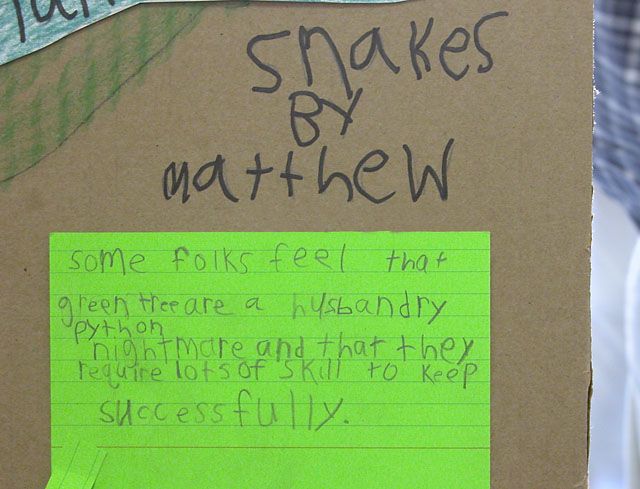 snakes
BY
matthew
some folks feel that
green tree are a husbandry
python
nightmare and that they
require lots of skill to keep
successfully.